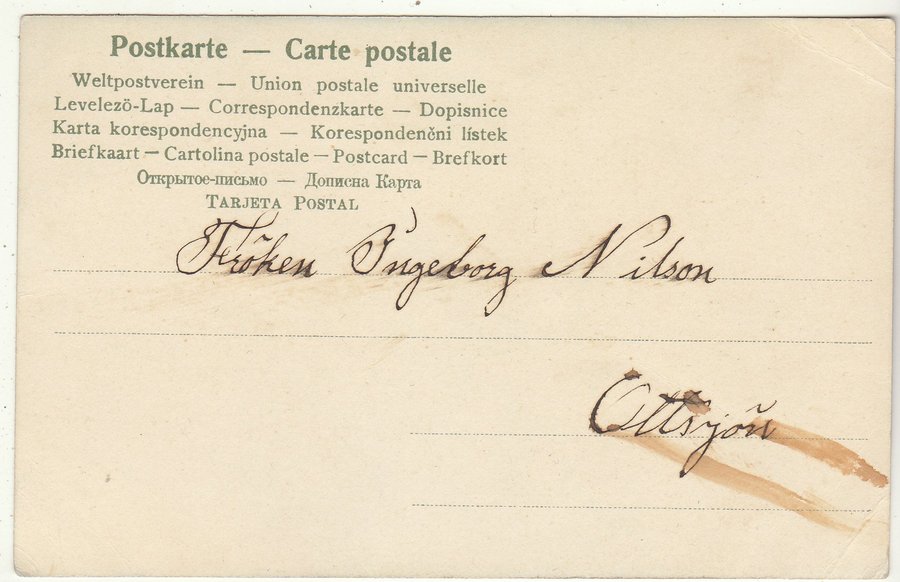 Postkarte — Carte postale
Weltpostverein — Union postale universelle
Levelezö-Lap — Correspondenzkarte — Dopisnice
Karta korespondencyjna — Korespondenčni lístek
Briefkaart — Cartolina postale — Postcard — Brefkort
Открытое-письмо — Дописна Карта
TARJETA POSTAL
Fröken Ingeborg Nilson
Ottsjön